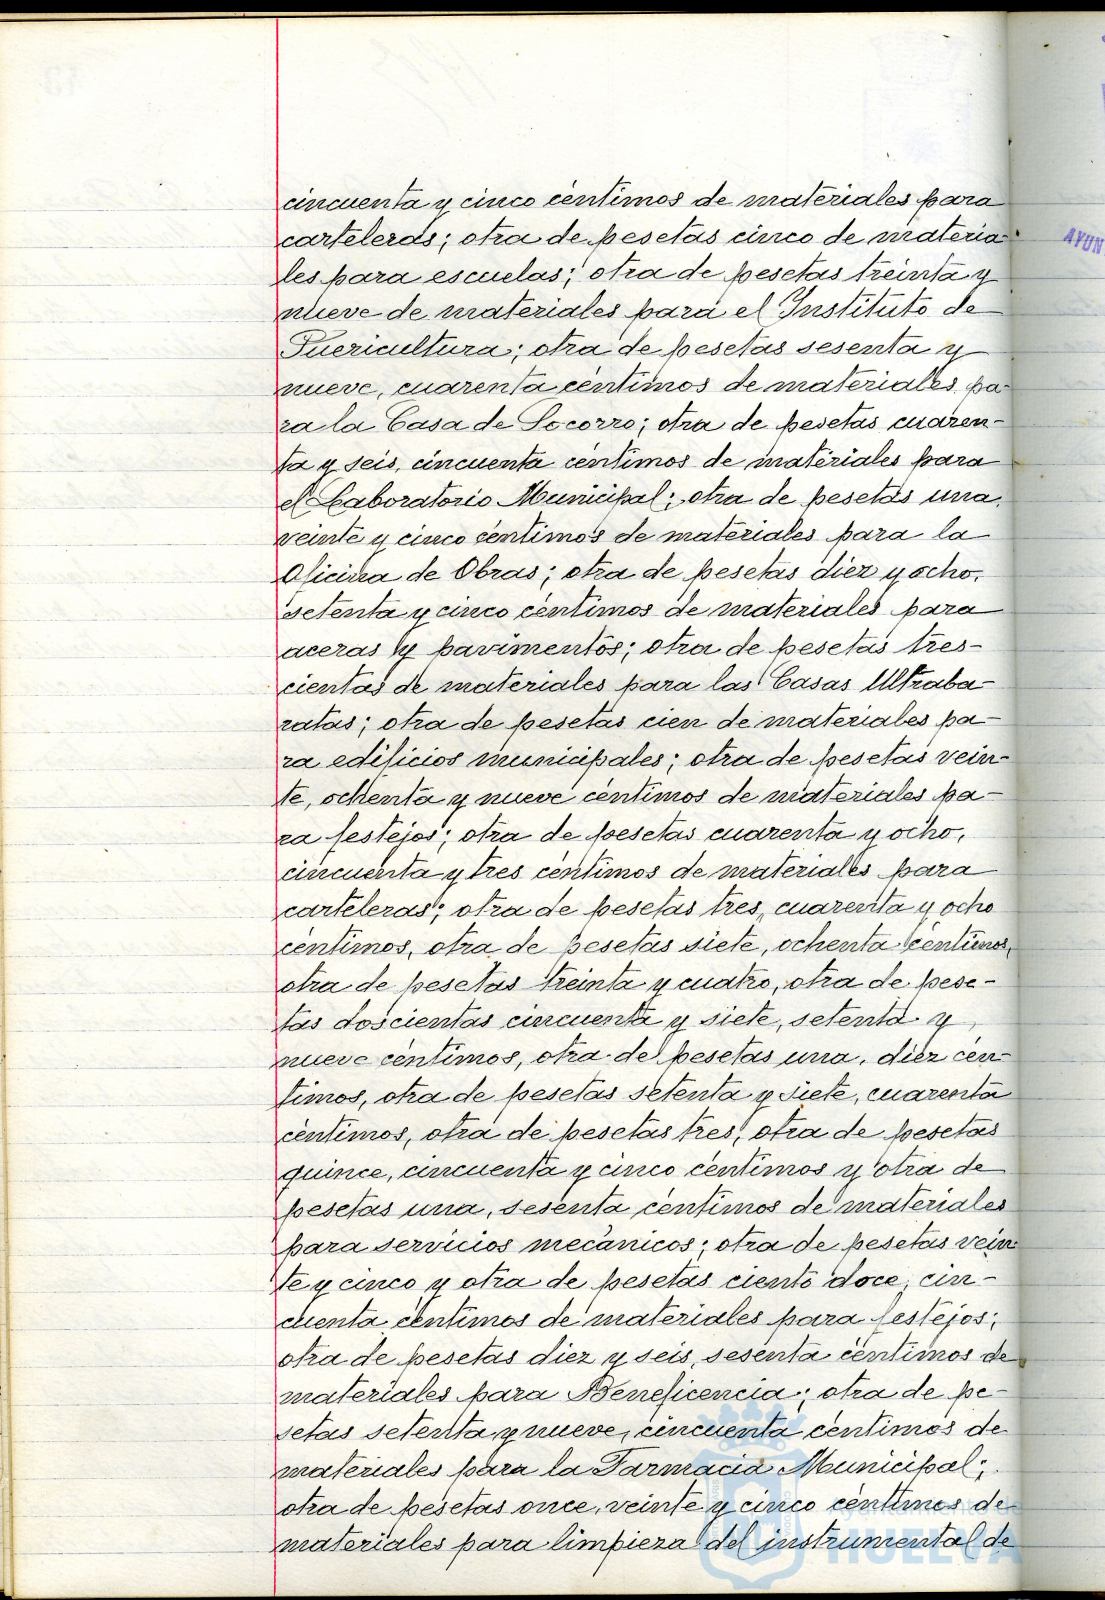 cincuenta y cinco céntimos de materiales para
carteleras; otra de pesetas cinco de materia-
les para escuelas; otra de pesetas treinta y
nueve de materiales para el Instituto de
Puericultura; otra de pesetas sesenta y
nueve, cuarenta céntimos de materiales pa-
ra la Casa de Socorro; otra de pesetas cuaren-
ta y seis, cincuenta céntimos de materiales para
el Laboratorio Municipal; otra de pesetas una,
veinte y cinco céntimos de materiales para la
Oficina de Obras; otra de pesetas diez y ocho,
setenta y cinco céntimos de materiales para
aceras y pavimentos; otra de pesetas tres-
cientas de materiales para las Casas Ultraba-
ratas; otra de pesetas cien de materiales pa-
ra edificios municipales; otra de pesetas vein-
te, ochenta y nueve céntimos de materiales pa-
ra festejos; otra de pesetas cuarenta y ocho,
cincuenta y tres céntimos de materiales para
carteleras; otra de pesetas tres, cuarenta y ocho
céntimos, otra de pesetas siete, ochenta céntimos,
otra de pesetas treinta y cuatro, otra de pese-
tas doscientas cincuenta y siete, setenta y
nueve céntimos, otra de pesetas una, diez cén-
timos, otra de pesetas setenta y siete, cuarenta
céntimos, otra de pesetas tres, otra de pesetas
quince, cincuenta y cinco céntimos y otra de
pesetas una, sesenta céntimos de materiales
para servicios mecánicos; otra de pesetas vein-
te y cinco y otra de pesetas ciento doce, cin-
cuenta céntimos de materiales para festejos;
otra de pesetas diez y seis, sesenta céntimos de
materiales para Beneficencia; otra de pe-
setas setenta y nueve, cincuenta céntimos de
materiales para la Farmacia Municipal;
otra de pesetas once, veinte y cinco céntimos de
materiales para limpieza del instrumental de
AYUN
Ayuntamiento de
HUELVA